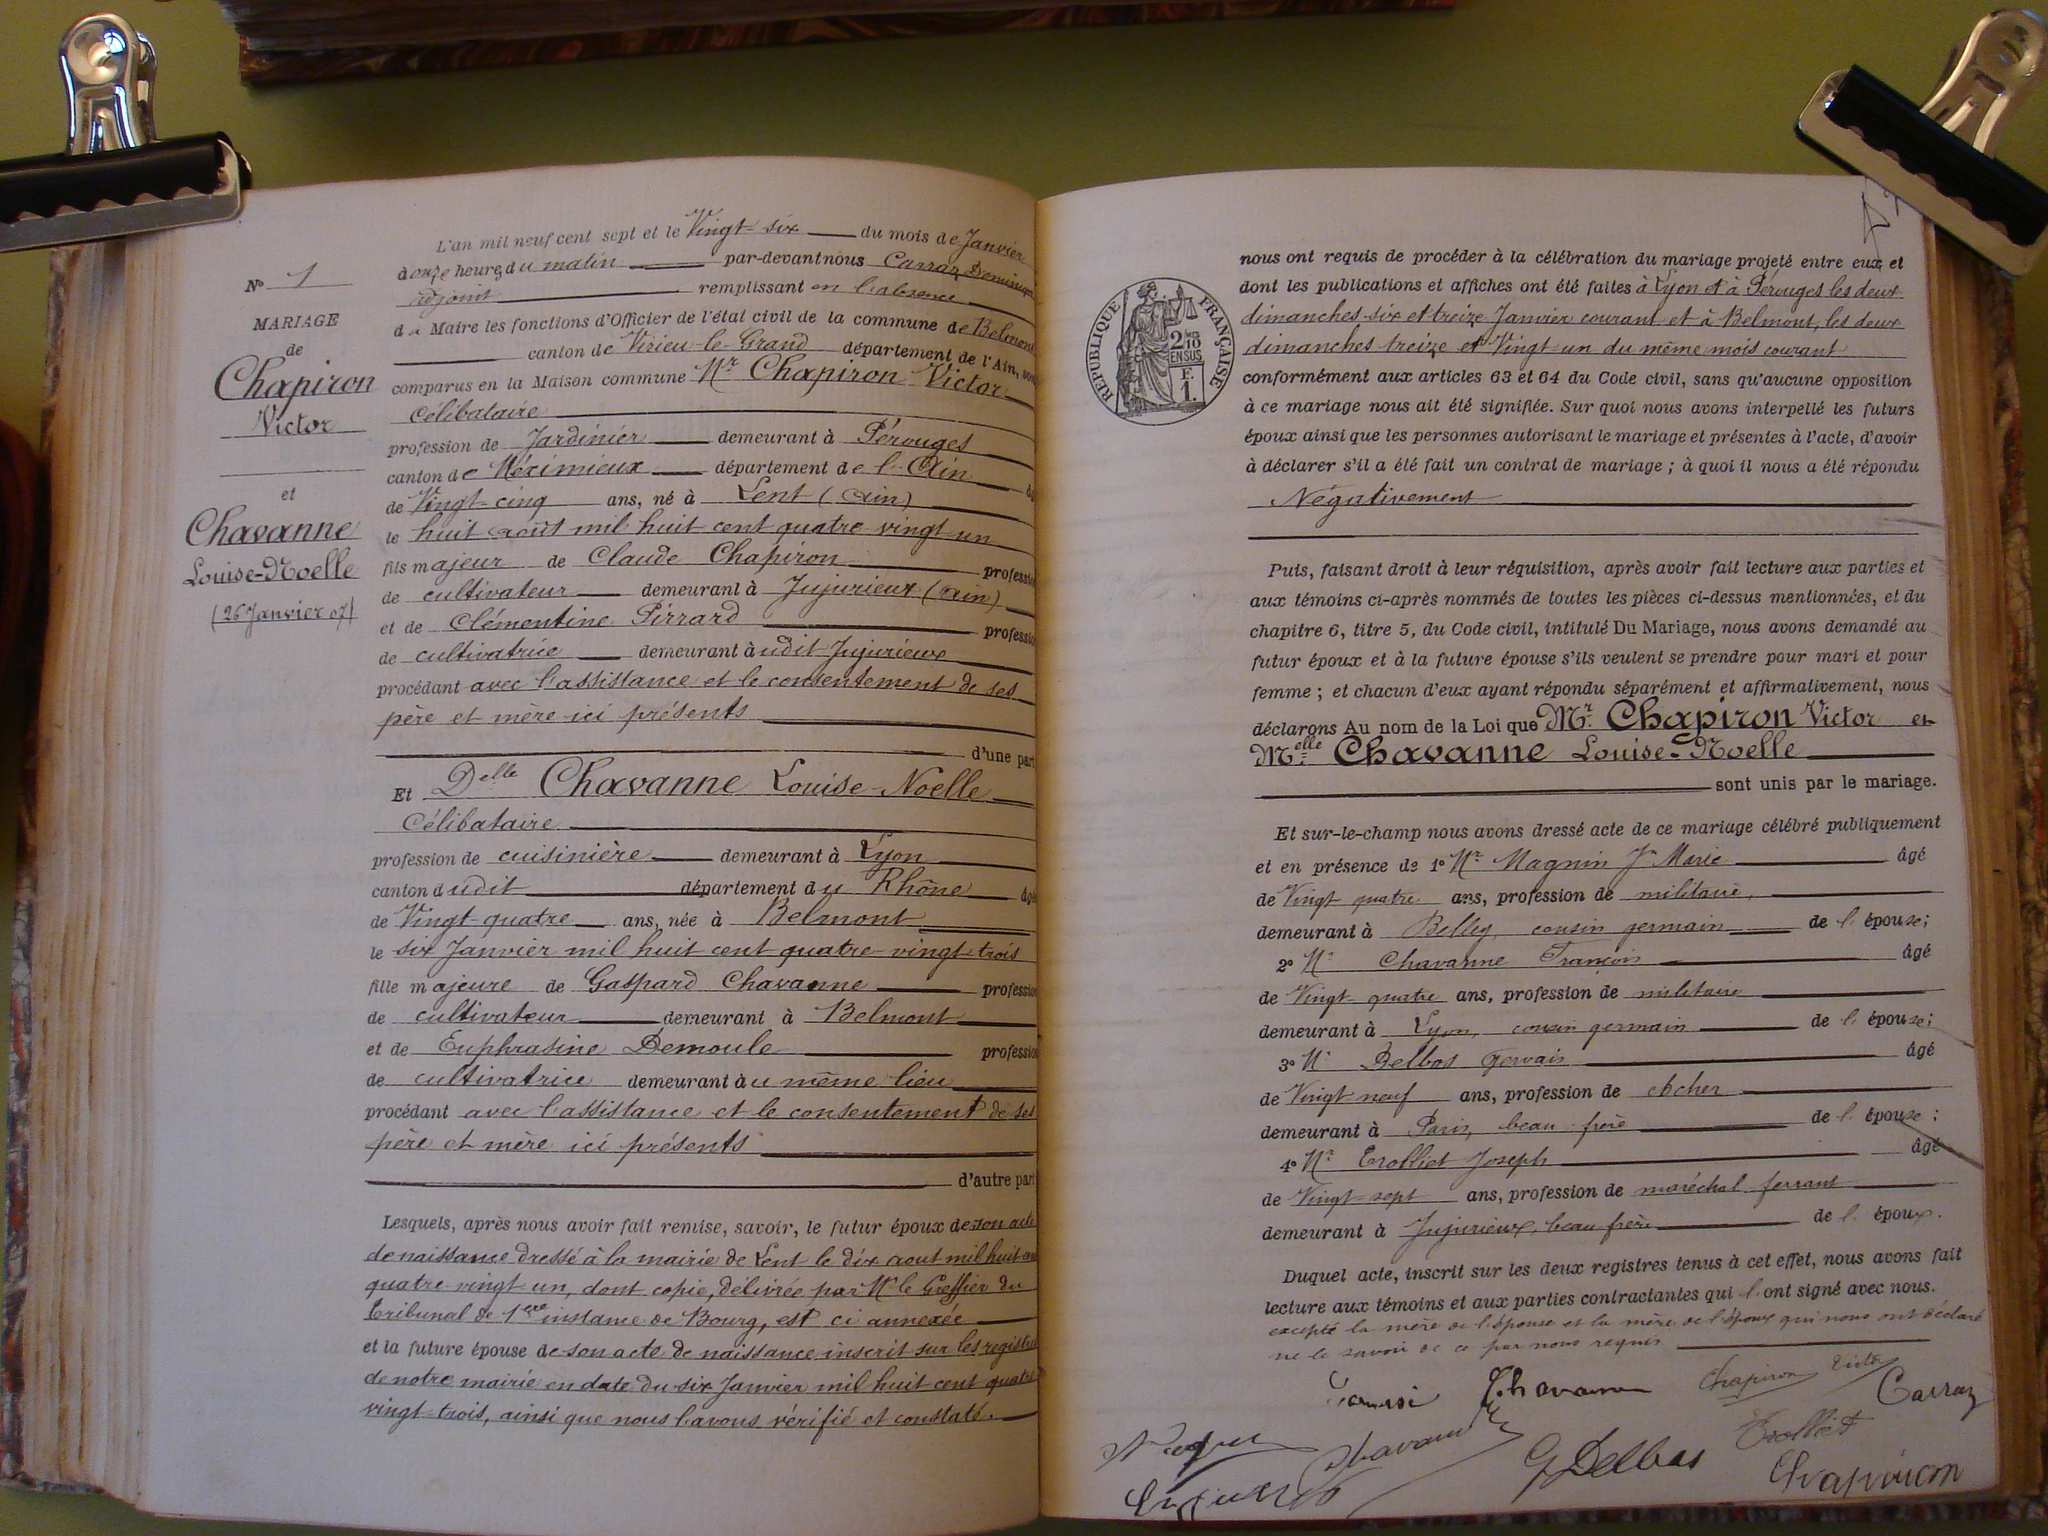 L'an mil neuf cent sept et le Vingt-six du mois de Janvier
à onze heures du matin par-devant nous Carraz Dominique
adjoint remplissant en l'absence
du Maire les fonctions d'Officier de l'état civil de la commune de Belmont
canton de Virieu-le-Grand département de l'Ain, sont
comparus en la Maison commune Mr Chapiron Victor
Célibataire
profession de Jardinier demeurant à Pérouges
canton de Méximieux département de l'Ain âgé
de Vingt-cinq ans, né à Lent (Ain)
le huit août mil huit cent quatre-vingt un
fils majeur de Claude Chapiron profession
de cultivateur demeurant à Jujurieux (Ain)
et de Clémentine Pirrard profession
de cultivatrice demeurant àudit Jujurieux
procédant avec l'assistance et le consentement de ses
père et mère ici présents
d'une part
Et Delle Chavanne Louise-Noelle
Célibataire
profession de cuisinière demeurant à Lyon
canton dudit département du Rhône âgée
de Vingt-quatre ans, née à Belmont
le six Janvier mil huit cent quatre-vingt-trois
fille majeure de Gaspard Chavanne profession
de cultivateur demeurant à Belmont
et de Euphrasine Demoule profession
de cultivatrice demeurant àu même lieu
procédant avec l'assistance et le consentement de ses
père et mère ici présents
d'autre part
Lesquels, après nous avoir fait remise, savoir, le futur époux de son acte
de naissance dressé à la mairie de Lent le dix aout mil huit cent
quatre-vingt un, dont copie, délivrée par Mr le Greffier du
Tribunal de 1ère instance de Bourg, est ci annexée
et la future épouse de son acte de naissance inscrit sur les registres
de notre mairie en date du six Janvier mil huit cent quatre
vingt-trois, ainsi que nous l'avons vérifié et constaté.
No 1
MARIAGE
de
Chapiron
Victor
et
Chavanne
Louise-Noelle
(26 Janvier 07)
RÉPUBLIQUE FRANÇAISE
2/10
EN SUS
F.
1.
nous ont requis de procéder à la célébration du mariage projeté entre eux et
dont les publications et affiches ont été faites à Lyon et à Pérouges les deux
dimanches six et treize Janvier courant et à Belmont, les deux
dimanches treize et Vingt un du même mois courant
conformément aux articles 63 et 64 du Code civil, sans qu'aucune opposition
à ce mariage nous ait été signifiée. Sur quoi nous avons interpellé les futurs
époux ainsi que les personnes autorisant le mariage et présentes à l'acte, d'avoir
à déclarer s'il a été fait un contrat de mariage ; à quoi il nous a été répondu
Négativement
Puis, faisant droit à leur réquisition, après avoir fait lecture aux parties et
aux témoins ci-après nommés de toutes les pièces ci-dessus mentionnées, et du
chapitre 6, titre 5, du Code civil, intitulé Du Mariage, nous avons demandé au
futur époux et à la future épouse s'ils veulent se prendre pour mari et pour
femme ; et chacun d'eux ayant répondu séparément et affirmativement, nous
déclarons Au nom de la Loi que Mr. Chapiron Victor et
Melle Chavanne Louise-Noelle
sont unis par le mariage.
Et sur-le-champ nous avons dressé acte de ce mariage célébré publiquement
et en présence de 1o Mr Magnin Jn Marie âgé
de Vingt quatre ans, profession de militaire,
demeurant à Belley, cousin germain de l'épouse;
2o Mr Chavanne François âgé
de Vingt-quatre ans, profession de militaire
demeurant à Lyon, cousin germain de l'épouse;
3o Mr Delbos Gervais âgé
de Vingt neuf ans, profession de cocher
demeurant à Paris, beau-frère de l'épouse ;
4o Mr Trolliet Joseph âgé
de Vingt-sept ans, profession de maréchal ferrant
demeurant à Jujurieux, beau frère de l'époux.
Duquel acte, inscrit sur les deux registres tenus à cet effet, nous avons fait
lecture aux témoins et aux parties contractantes qui l'ont signé avec nous.
excepté la mère de l'épouse et la mère de l'époux qui nous ont déclaré
ne le savoir de ce par nous requis
Chavanne Chapiron Victor Carraz
Chavanne G Delbos Trolliet
Chapiron